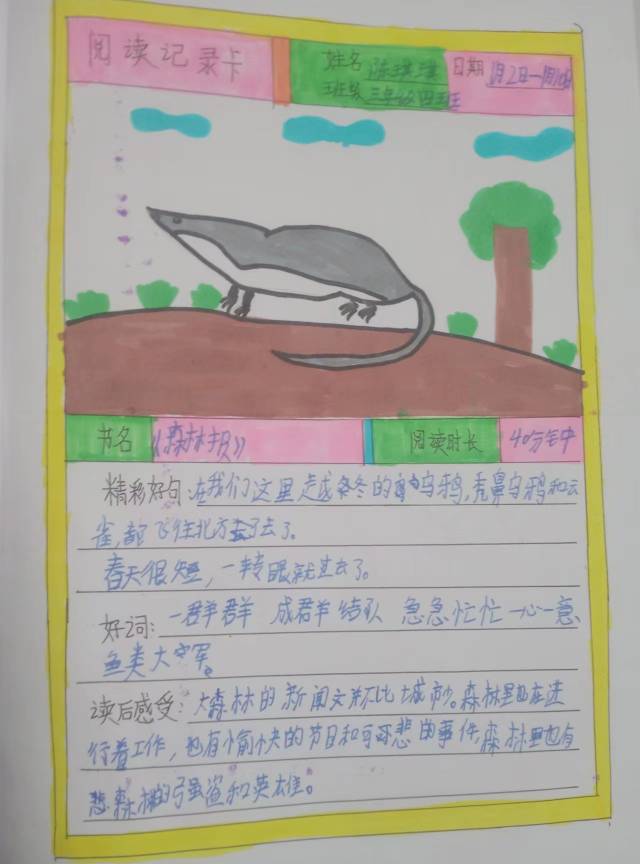 阅读记录卡
姓名 陈琪 日期 1月2日一1月10日
班级 三年级四班
书名 《森林报》 阅读时长 40分钟
精彩好句:在我们这里越冬的乌鸦,秃鼻乌鸦和云
雀,都飞往北方去了。
春天很短,一转眼就过去了。
好词:一群群 成群结队 急急忙忙 一心一意
鱼类大军。
读后感受:大森林的新闻并不比城市少。森林里也在进
行着工作,也有愉快的节日和可悲的事件,森林里也有
森林的强盗和英雄。